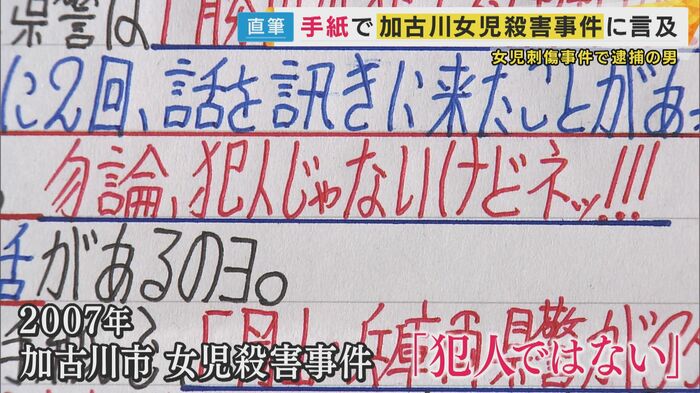 県警は
直筆 手紙で加古川女児殺害事件に言及
女児刺傷事件で逮捕の男
に2回、話を訊きに来たことがあっ
勿論、犯人じゃないけどネッ!!!
話があるのヨ。
県警が
2007年
加古川市 女児殺害事件 「犯人ではない」